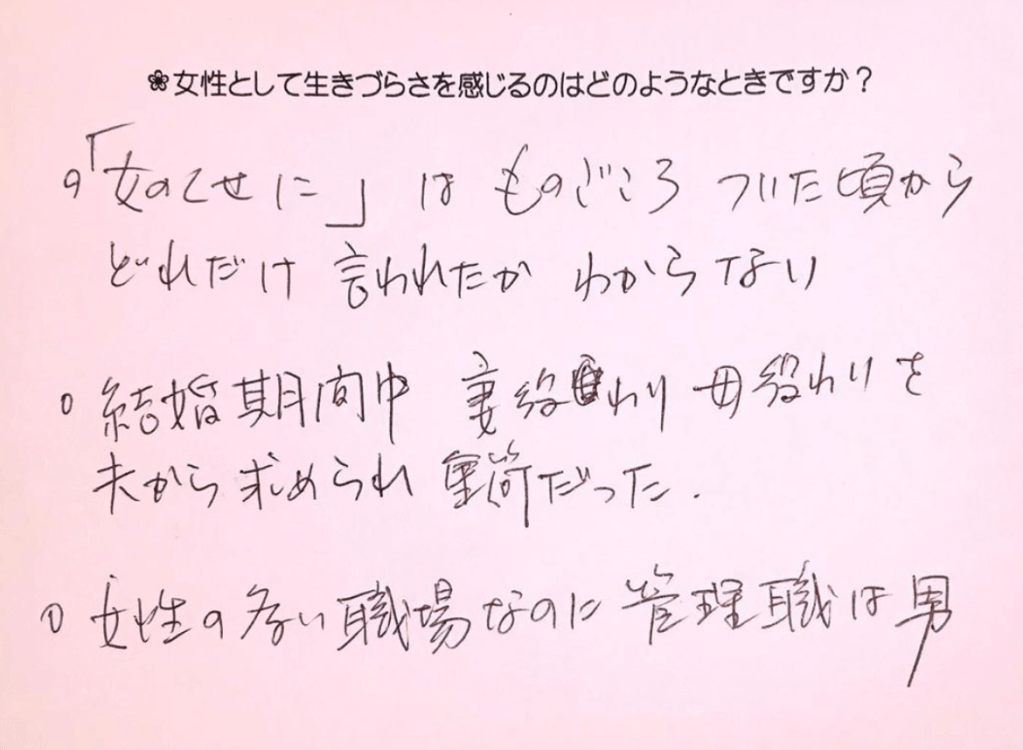 ❀女性として生きづらさを感じるのはどのようなときですか？
○「女のくせに」は ものごころ ついた頃から
どれだけ 言われたか わからない
○ 結婚期間中 妻役わり 母役わりを
夫から求められ 重荷だった.
○ 女性の多い職場なのに 管理職は男